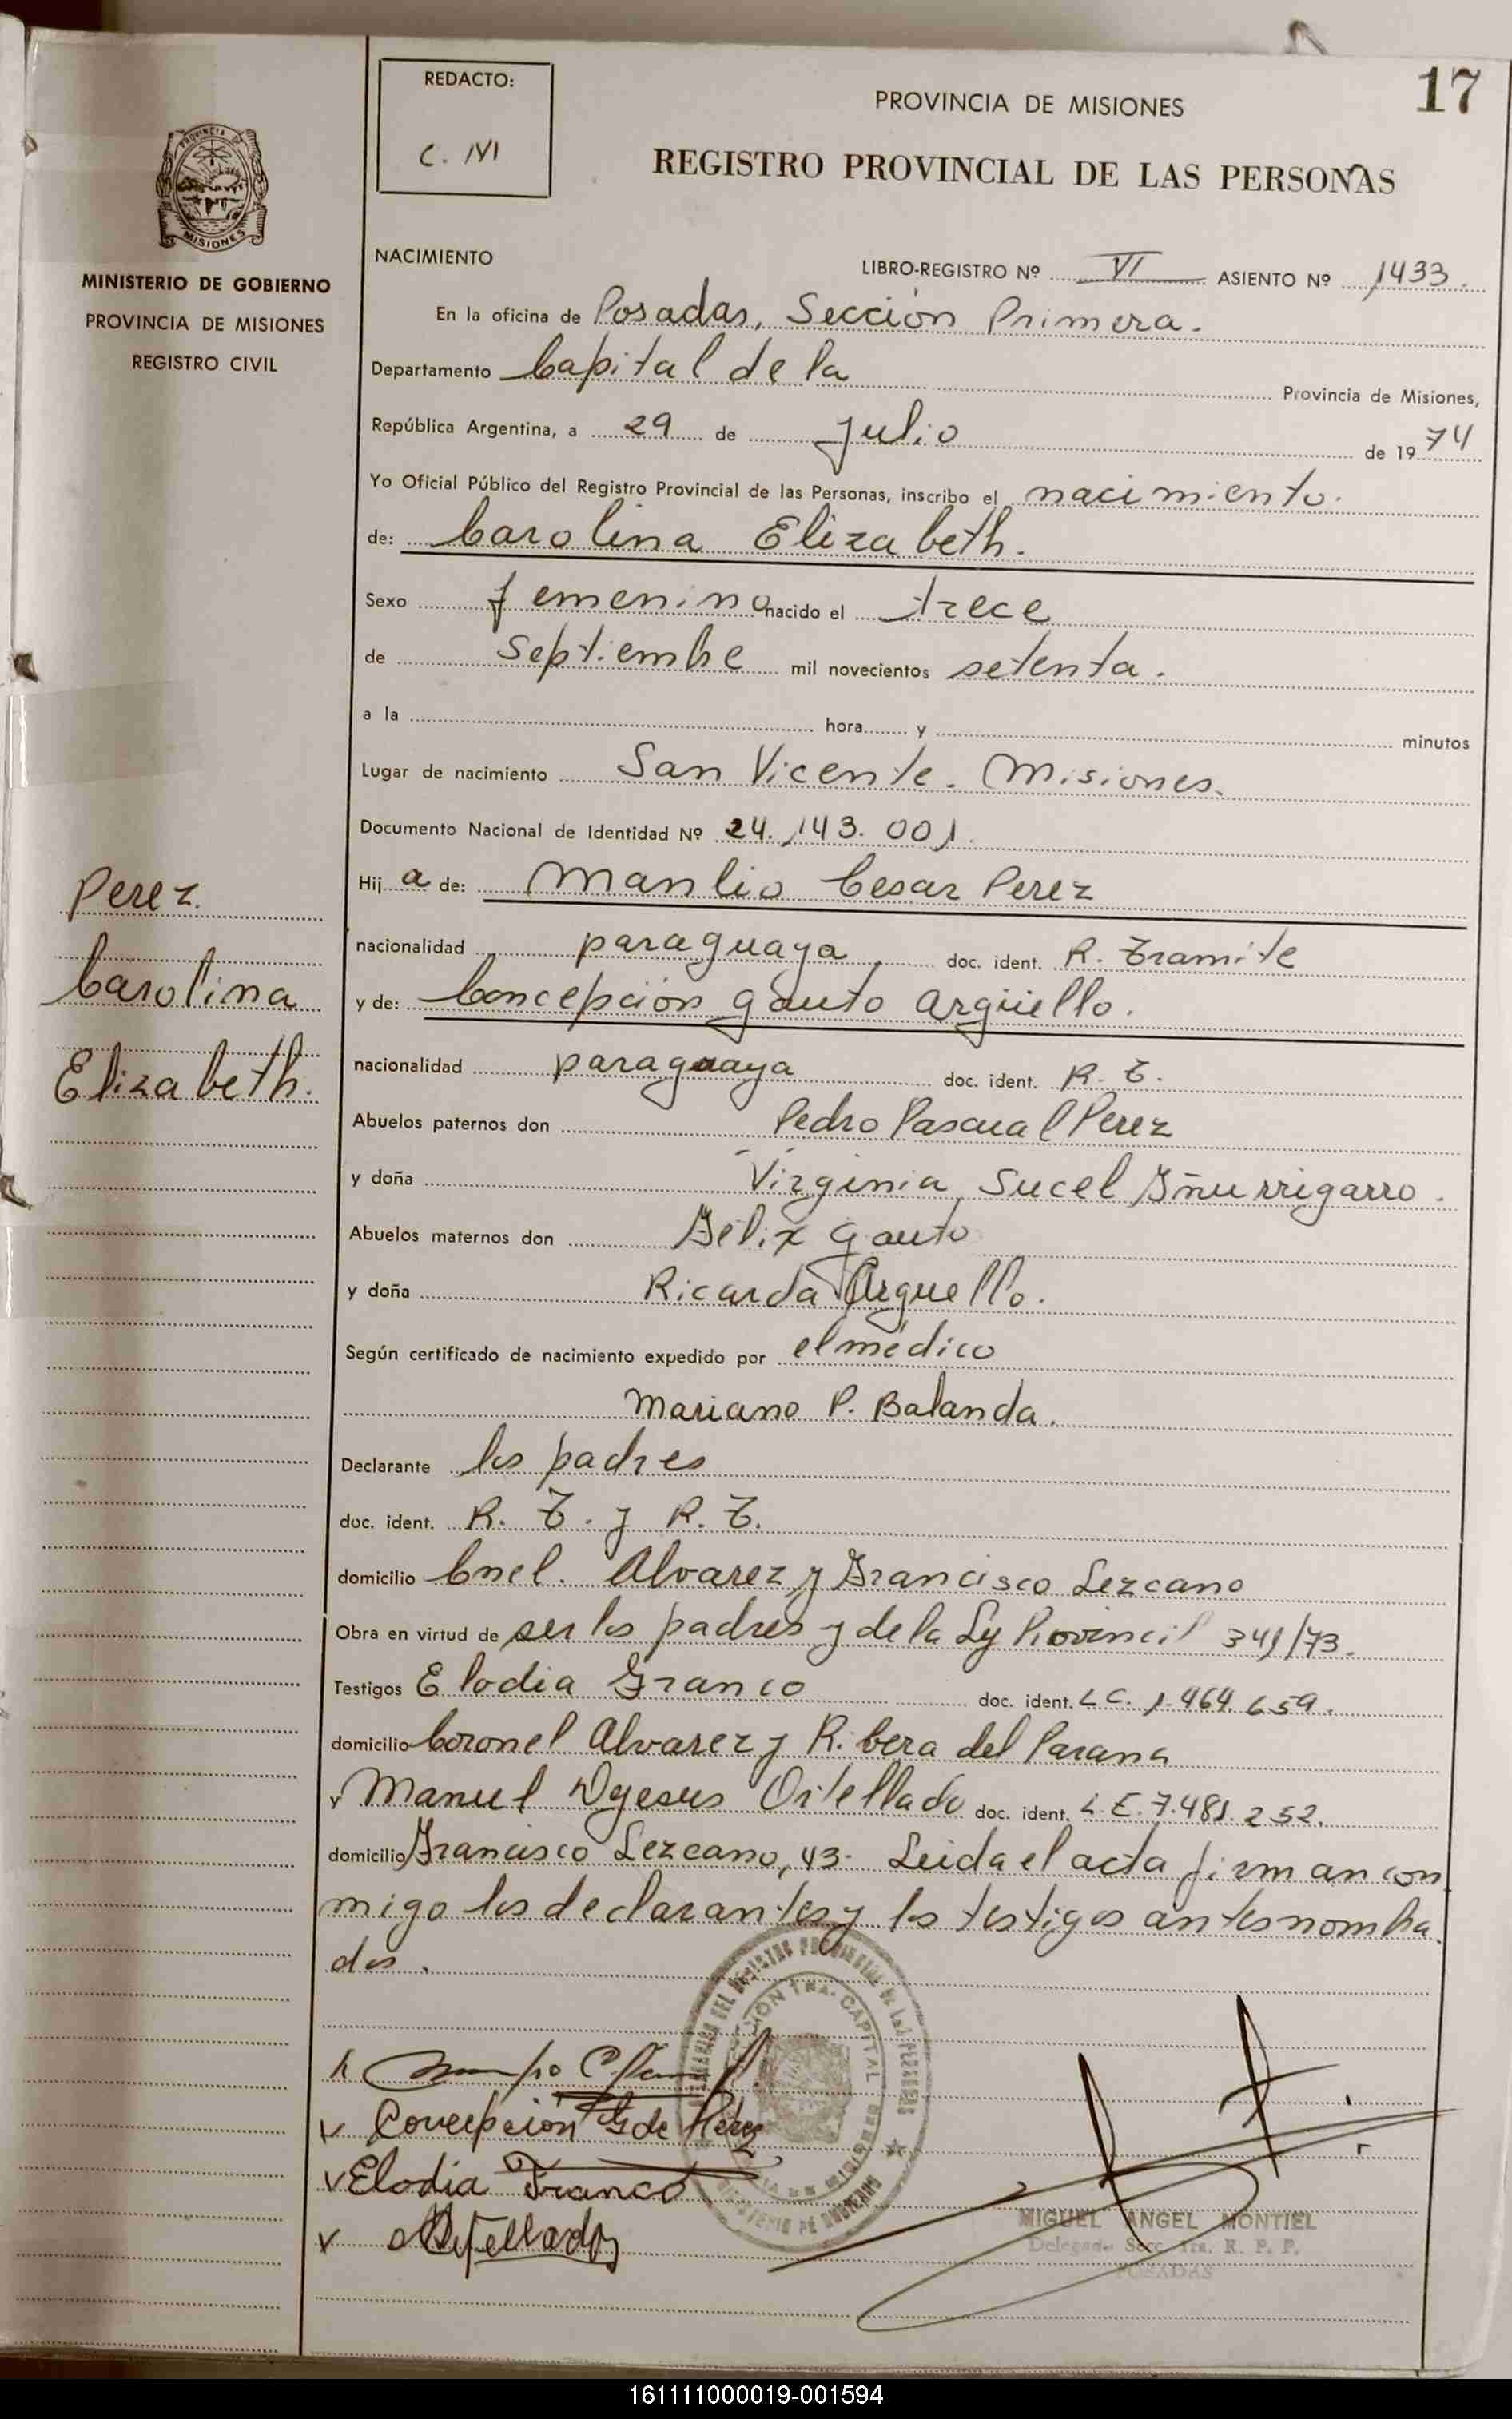 17
REDACTO:
C. M
PROVINCIA DE MISIONES
REGISTRO PROVINCIAL DE LAS PERSONAS
PROVINCIA DE
MISIONES
MINISTERIO DE GOBIERNO
PROVINCIA DE MISIONES
REGISTRO CIVIL
NACIMIENTO
LIBRO-REGISTRO Nº VI ASIENTO Nº 1433.
En la oficina de Posadas, Sección Primera.
Departamento Capital de la Provincia de Misiones,
República Argentina, a 29 de Julio de 1974
Yo Oficial Público del Registro Provincial de las Personas, inscribo el nacimiento.
de: Carolina Elizabeth.
Sexo femenino nacido el trece
de Septiembre mil novecientos setenta.
a la hora y minutos
Lugar de nacimiento San Vicente. Misiones.
Documento Nacional de Identidad Nº 24.143.001.
Hij a de: Manlio Cesar Perez
nacionalidad paraguaya, doc. ident. R. Tramite
y de: Concepción Gauto Argüello.
nacionalidad paraguaya doc. ident. R. T.
Abuelos paternos don Pedro Pascual Perez
y doña Virginia Sucel Iñurrigarro.
Abuelos maternos don Félix Gauto
y doña Ricarda Arguello.
Según certificado de nacimiento expedido por el médico
Mariano P. Balanda.
Declarante los padres
doc. ident. R. T. y R. T.
domicilio Cnel. Alvarez y Francisco Lezcano
Obra en virtud de ser los padres y de la Ley Provincil 341/73.
Testigos Elodia Franco doc. ident. L C. 1.464.659.
domicilio Coronel Alvarez y Ribera del Parana
y Manuel Dejesus Ortellado doc. ident. L. E. 7.481.252.
domicilio Francisco Lezcano, 43- Leida el acta firman con
migo los declarantes y los testigos antes nombra
dos.
Perez
Carolina
Elizabeth.
Concepción G de Pérez
Elodia Franco
Ortellado
MIGUEL ANGEL MONTIEL
Delegado Secc. 1ra. R. P. P.
POSADAS
161111000019-001594